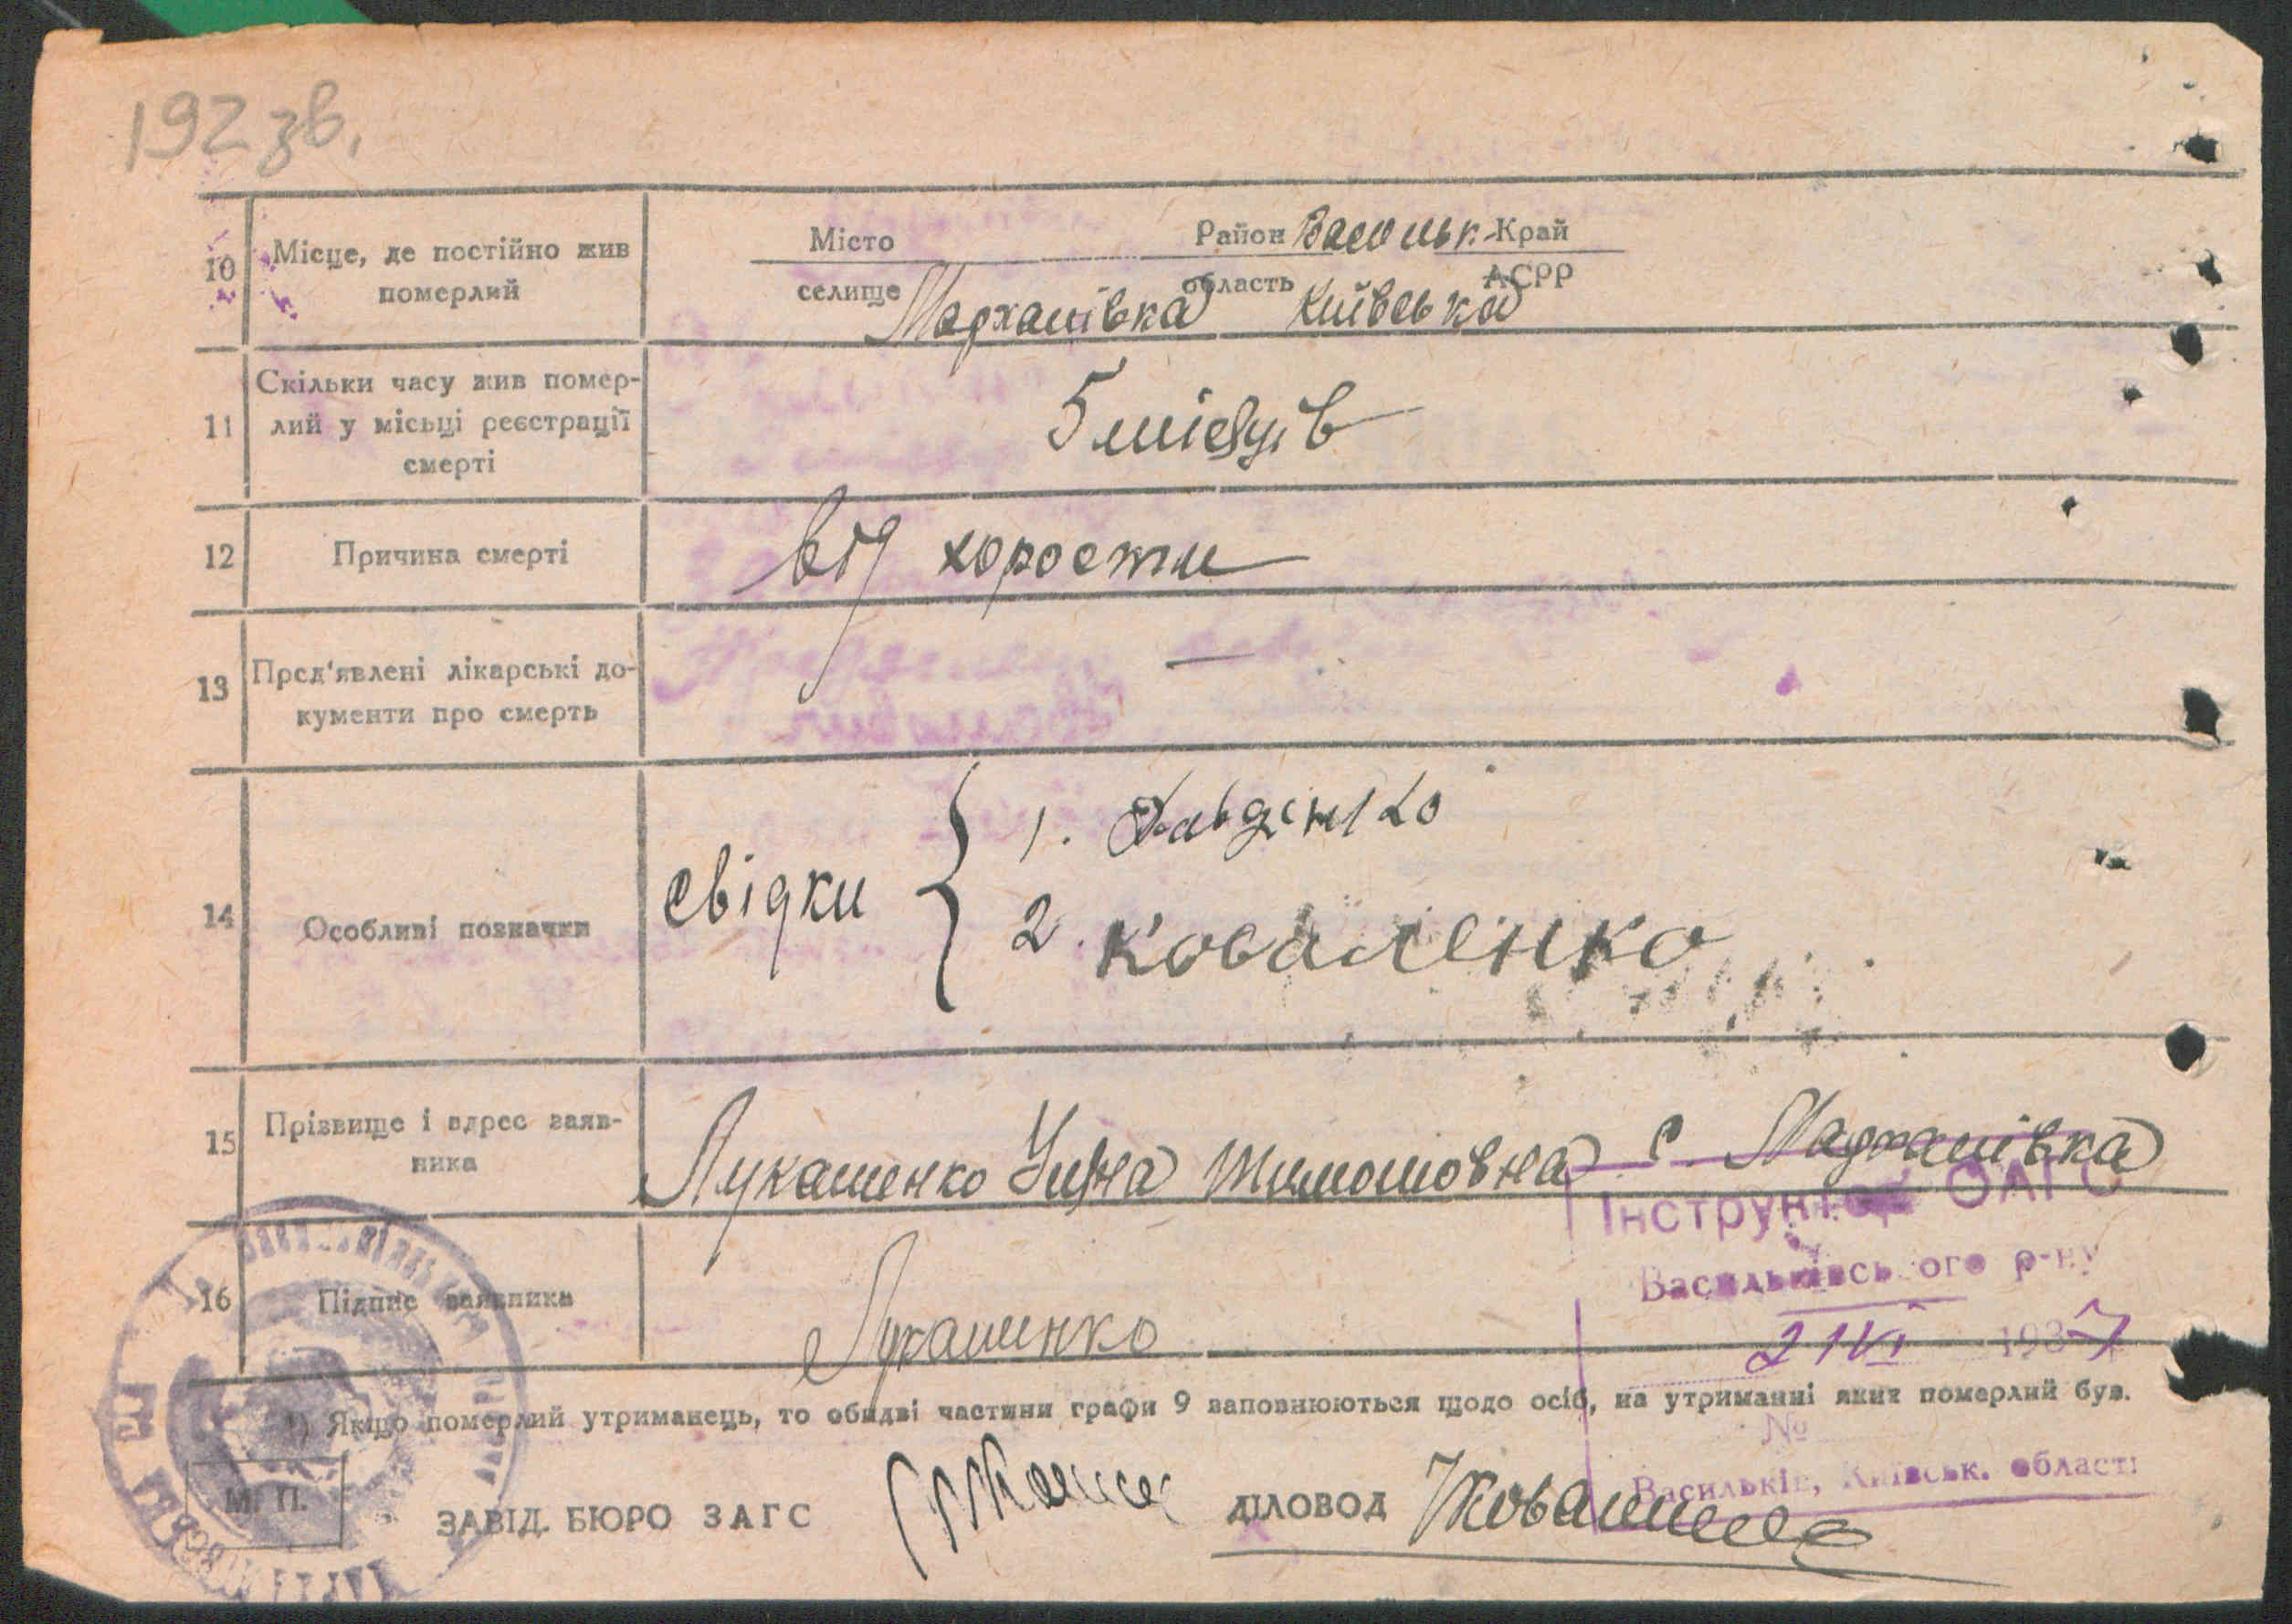 192 зв.
10 Місце, де постійно жив померлий
Місто Район Васильк. Край
селище Мархалівка область Київська АСРР
11 Скільки часу жив помер-
лий у місьці реєстрації
смерті
5 місяців
12 Причина смерті
від хорости
13 Пред'явлені лікарські до-
кументи про смерть
—
14 Особливі позначки
свідки
1. Давденко
2. Коваленко
15 Прізвище і адрес заяв-
ника
Лукашенко Тимошовна с. Мархалівка
16 Підпис заявника
Лукашенко
Інструктор ЗАГС
Васильківського р-ну
2 IVI 1937
№
Васильків, Київськ. області
1) Якщо померлий утриманець, то обидві частини графи 9 заповнюються щодо осіб, на утриманні яких померлий був.
М. П.
ЗАВІД. БЮРО ЗАГС
ДІЛОВОД